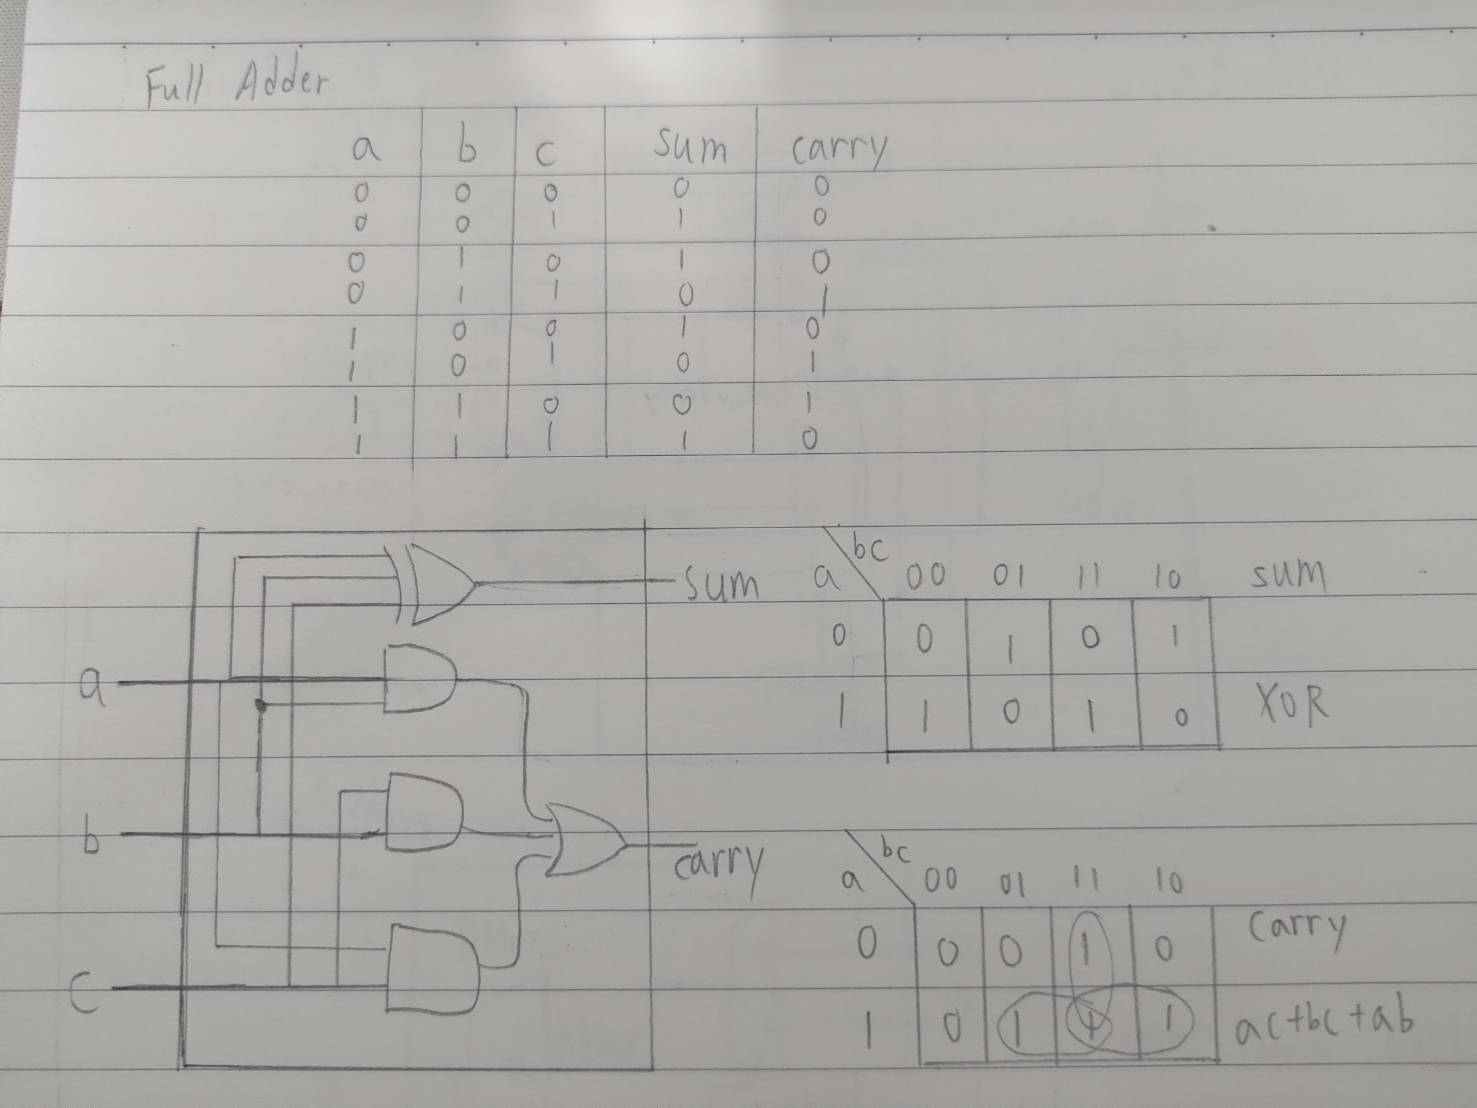 Full Adder
a b c sum carry
0 0 0 0 0
0 0 1 1 0
0 1 0 1 0
0 1 1 0 1
1 0 0 1 0
1 0 1 0 1
1 1 0 0 1
1 1 1 1 0
sum
a
b
carry
c
bc
a 00 01 11 10 sum
0 0 1 0 1
1 1 0 1 0 XOR
bc
a 00 01 11 10
0 0 0 1 0 carry
1 0 1 1 1 ac+bc+ab